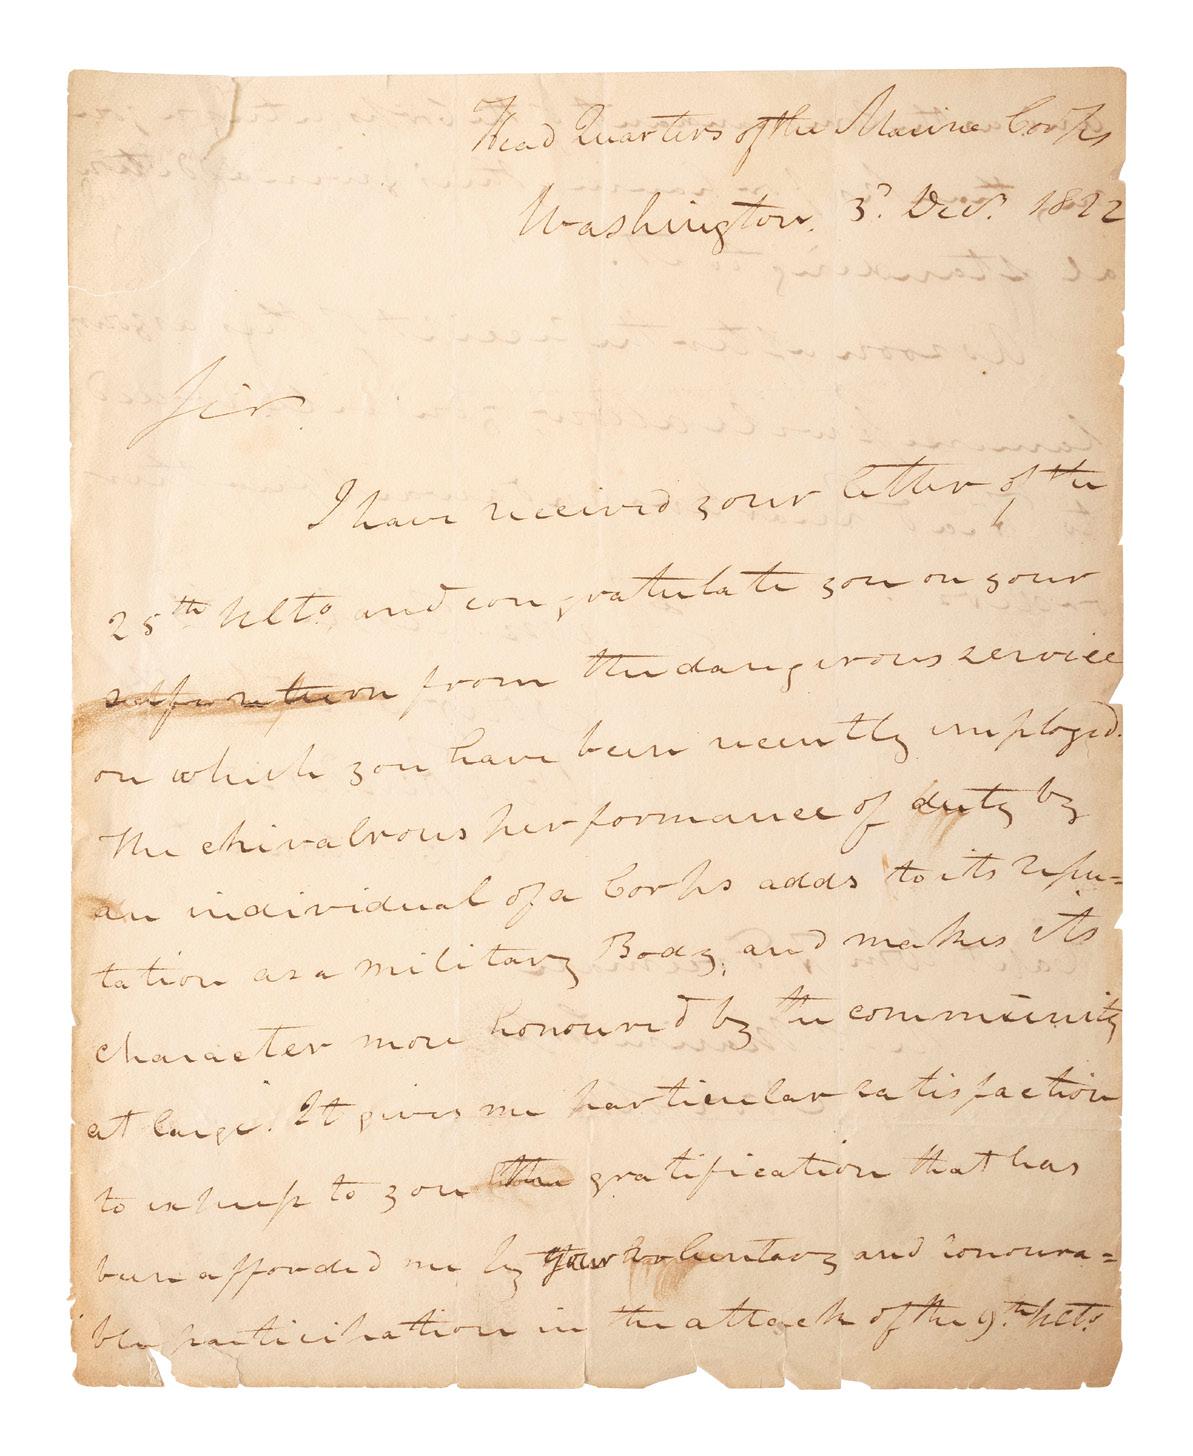 Head Quarters of the Marine Corps
Washington. 3d. Decr. 1822
Sir
I have received your letter of the
25th Ulto. and congratulate you on your
safe return from the dangerous service
on which you have been recently employed.
The chivalrous performance of duty by
an individual of a Corps adds to its repu-
tation as a military Body, and makes its
character more honoured by the community
at large. It gives me particular satisfaction
to express to you the gratification that has
been afforded me by your voluntary and honoura=
ble participation in the attack of the 9th Ulto.